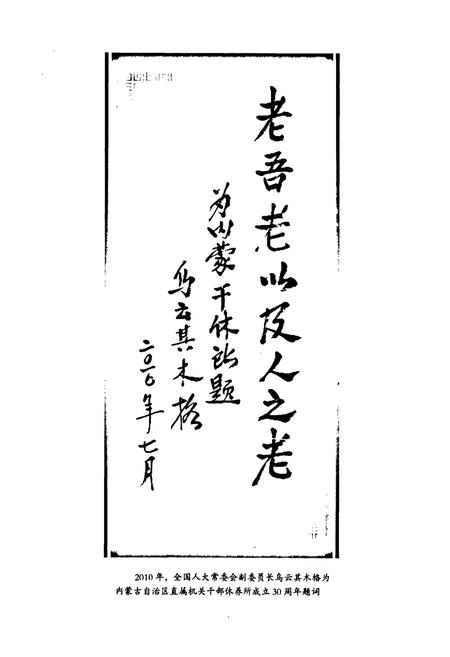 老吾老以及人之老
为内蒙干休所题
乌云其木格
二〇一〇年七月
2010 年，全国人大常委会副委员长乌云其木格为
内蒙古自治区直属机关干部休养所成立 30 周年题词